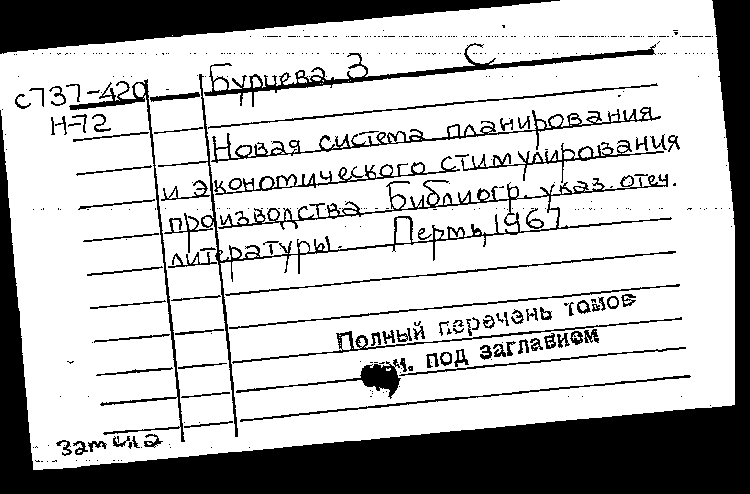 С737-420 Бурцева, З С
Н-72
Новая система планирования
и экономического стимулирования
производства. Библиогр. указ. отеч.
литературы. Пермь, 1967.
Полный перечень томов
см. под заглавием